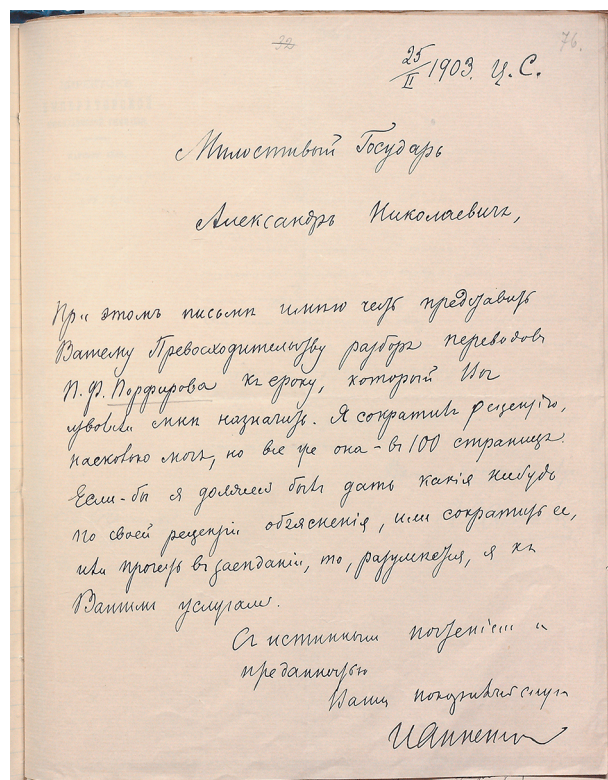 32
76.
25/II 1903. Ц. С.
Милостивый Государь
Александръ Николаевичъ,
При этомъ письмѣ имѣю честь представить
Вашему Превосходительству разборъ переводовъ
П. Ф. Порфирова къ сроку, который Вы
изволили мнѣ назначить. Я сократилъ рецензію,
насколько могъ, но все же она - въ 100 страницъ.
Если-бы я долженъ былъ дать какія нибудь
по своей рецензіи объясненія, или сократить ее,
или прочесть въ засѣданіи, то, разумѣется, я къ
Вашимъ услугамъ.
Съ истиннымъ почтеніемъ и
преданностью
Вашъ покорнѣйшій слуга
И Анненскій